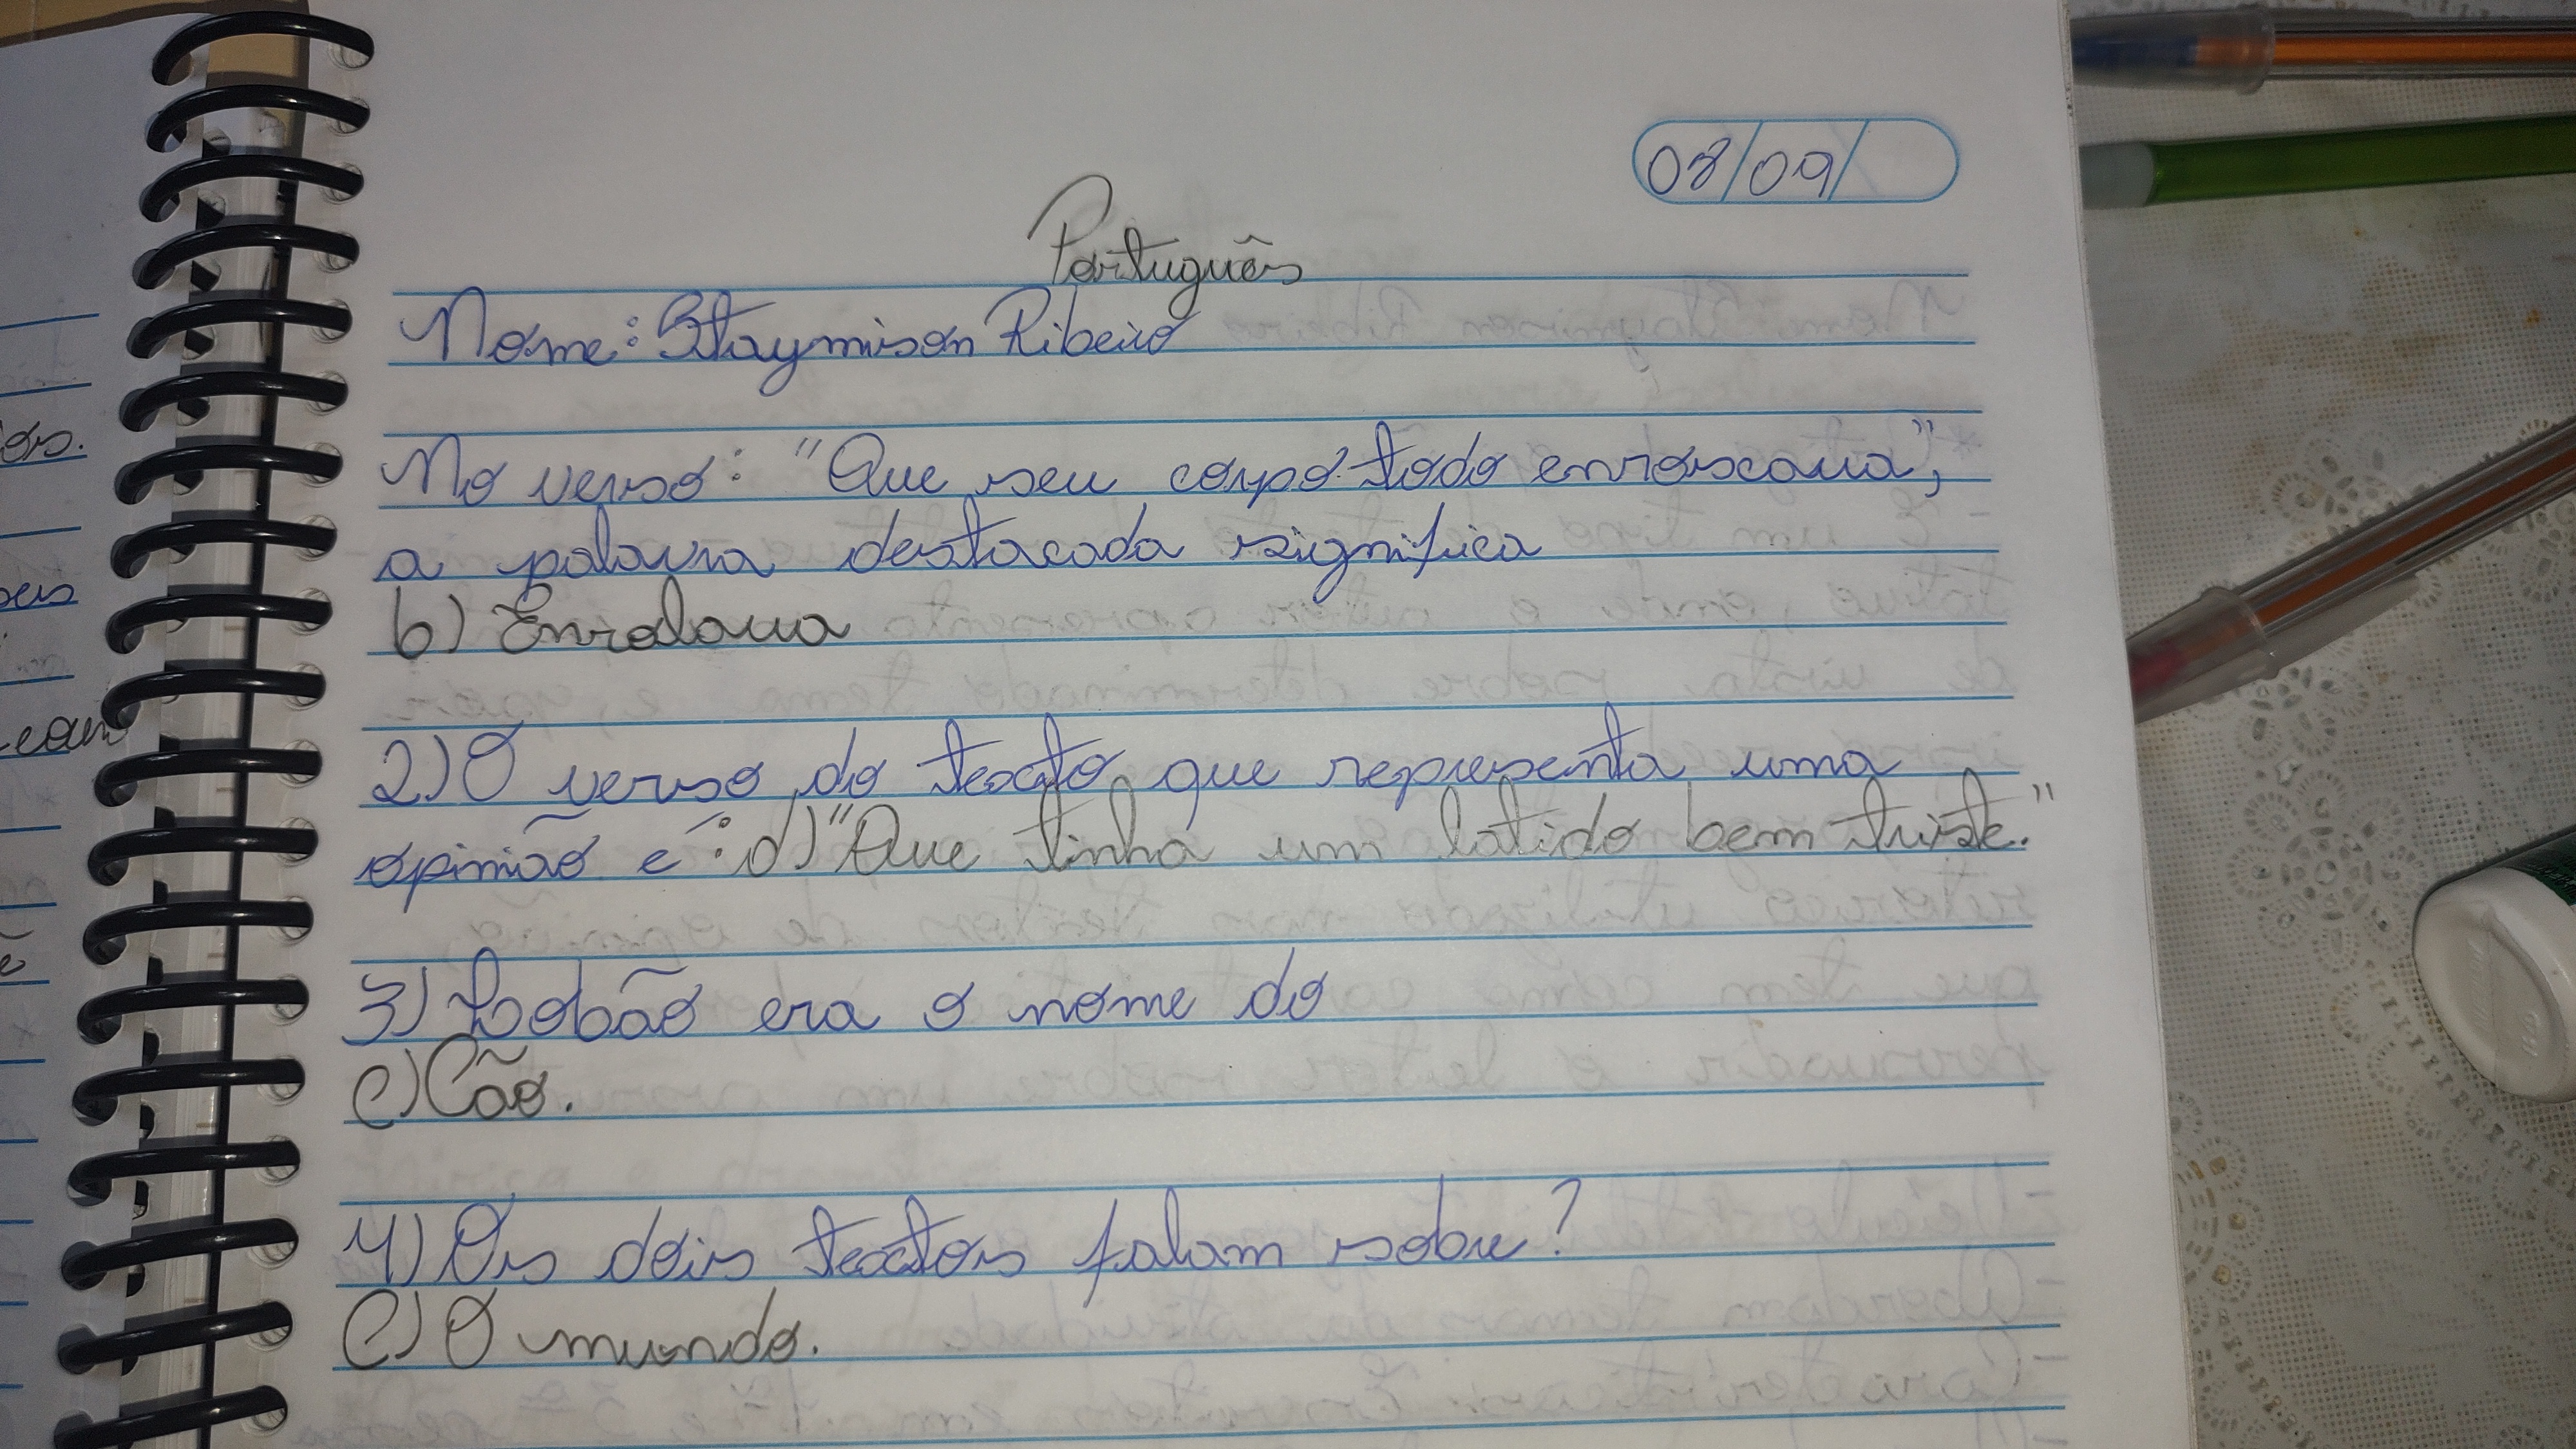 08/09/
Português
Nome: Staymison Ribeiro
No verso: "Que seu corpo todo enroscava",
a palavra destacada significa
b) Enrolava
2) O verso do texto que representa uma
opinião é: d) "Que tinha um latido bem triste."
3) Lobão era o nome do
c) Cão.
4) Os dois textos falam sobre?
C) O mundo.